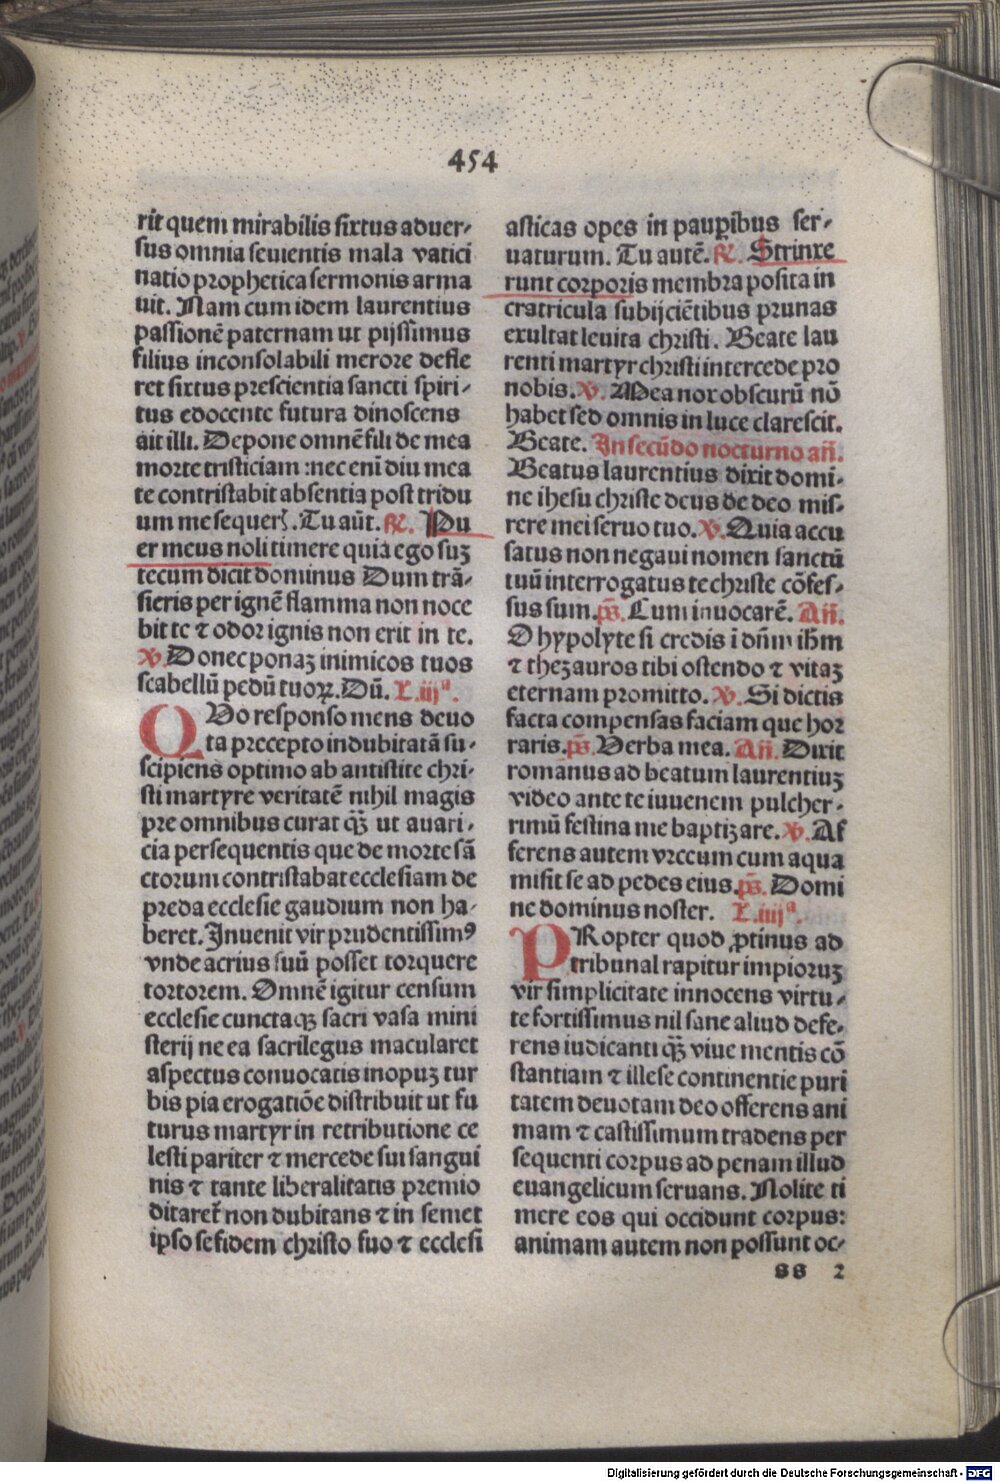 454
rit quem mirabilis sixtus aduer-
sus omnia seuientis mala vatici
natio prophetica sermonis arma
uit. Nam cum idem laurentius
passionē paternam ut pijssimus
filius inconsolabili merore defle
ret sixtus prescientia sancti spiri-
tus edocente futura dinoscens
ait illi. Depone omnē fili de mea
morte tristiciam :nec eni diu mea
te contristabit absentia post tridu
um me sequerꝭ. Tu aūt. ℟. Pu
er meus noli timere quia ego suꝫ
tecum dicit dominus Dum trā-
sieris per ignē flamma non noce
bit te ⁊ odor ignis non erit in te.
℣. Donec ponaꝫ inimicos tuos
scabellū pedū tuoꝝ. Dū. L.iijª.
QVo responso mens deuo
ta precepto indubitatā su-
scipiens optimo ab antistite chri-
sti martyre veritatē nihil magis
pre omnibus curat qꝫ̄ ut auari-
cia persequentis que de morte sā
ctorum contristabat ecclesiam de
preda ecclesie gaudium non ha-
beret. Inuenit vir prudentissimꝰ
vnde acrius suū posset torquere
tortorem. Omnē igitur censum
ecclesie cunctaqꝫ sacri vasa mini
sterij ne ea sacrilegus macularet
aspectus conuocatis inopuꝫ tur
bis pia erogatiōe distribuit ut fu
turus martyr in retributione ce
lesti pariter ⁊ mercede sui sangui
nis ⁊ tante liberalitatis premio
ditaret̄ non dubitans ⁊ in semet
ipso se fidem christo suo ⁊ ecclesi
asticas opes in paupībus ser-
uaturum. Tu autē. ℟. Strinxe
runt corporis membra posita in
cratricula subijciētibus prunas
exultat leuita christi. Beate lau
renti martyr christi intercede pro
nobis. ℣. Mea nox obscurū nō
habet sed omnis in luce clarescit.
Beate. In secūdo nocturno añ.
Beatus laurentius dixit domi-
ne ihesu christe deus de deo mis-
rere mei seruo tuo. ℣. Quia accu
satus non negaui nomen sanctū
tuū interrogatus te christe cōfes-
sus sum. ps̄. Cum inuocarē. Añ.
O hypolyte si credis ī dn̄m ihm̄
⁊ thezauros tibi ostendo ⁊ vitaꝫ
eternam promitto. ℣. Si dictis
facta compensas faciam que hor
raris. ps̄. Verba mea. Añ. Dixit
romanus ad beatum laurentiuꝫ
video ante te iuuenem pulcher-
rimū festina me baptizare. ℣. Af
ferens autem vrceum cum aqua
misit se ad pedes eius. ps̄. Domi
ne dominus noster. L.iiijª.
PRopter quod ꝓtinus ad
tribunal rapitur impioruꝫ
vir simplicitate innocens virtu-
te fortissimus nil sane aliud defe-
rens iudicanti qꝫ̄ viue mentis cō
stantiam ⁊ illese continentie puri
tatem deuotam deo offerens ani
mam ⁊ castissimum tradens per
sequenti corpus ad penam illud
euangelicum seruans. Nolite ti
mere eos qui occidunt corpus:
animam autem non possunt oc-
ss 2
Digitalisierung gefördert durch die Deutsche Forschungsgemeinschaft - DFG